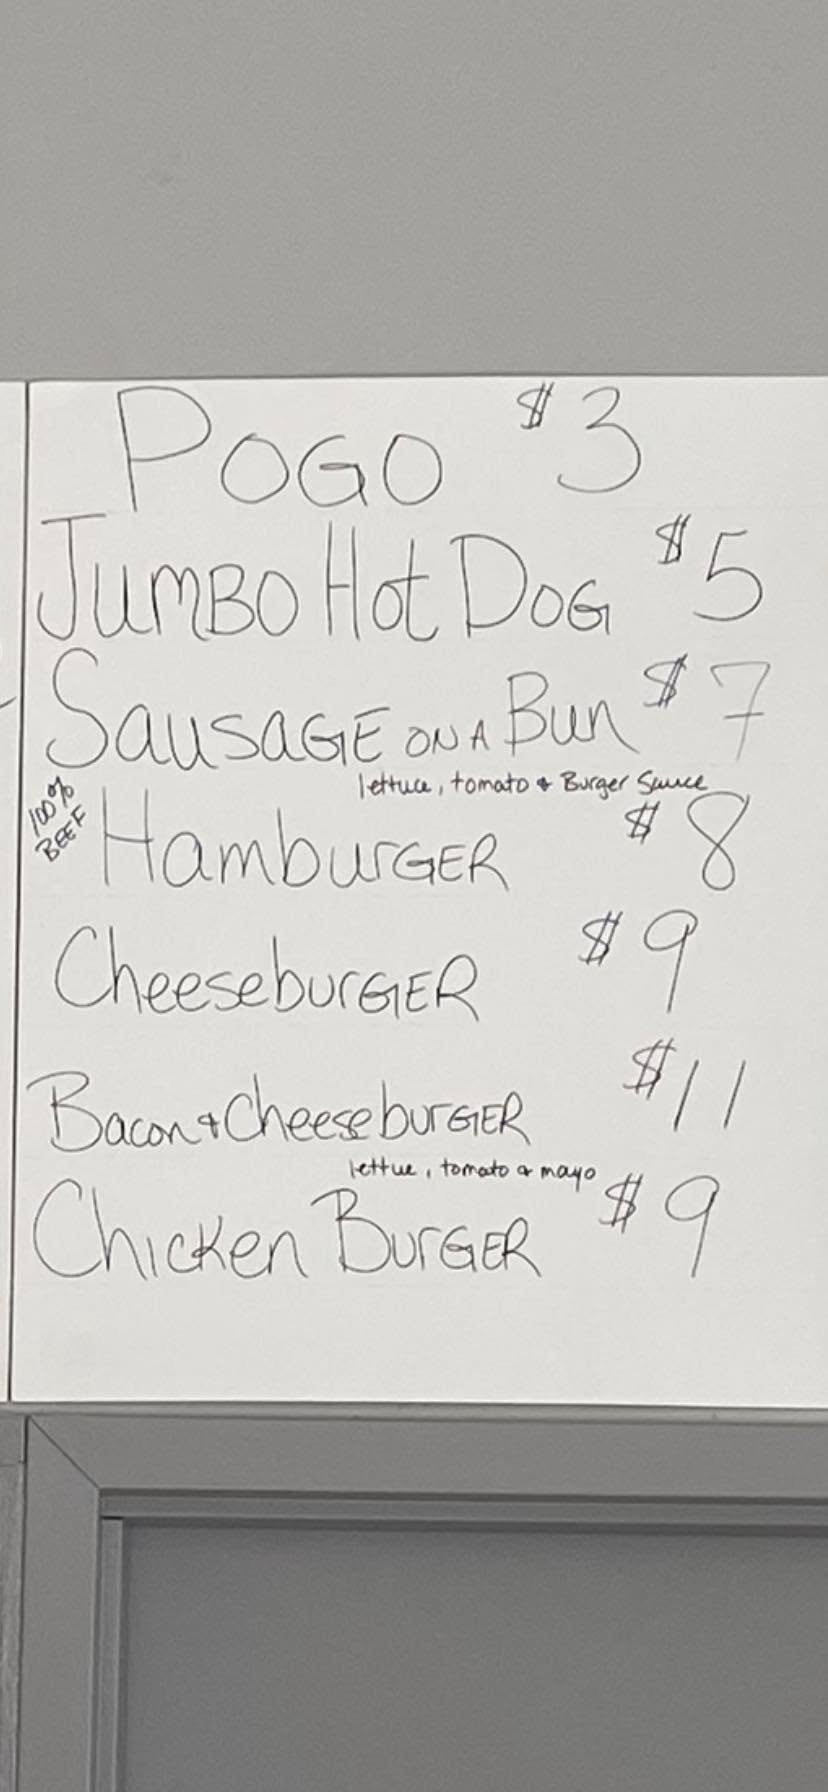 POGO $3
JUMBO Hot DOG $5
SausaGE ON A Bun $7
lettuce, tomato & Burger Sauce
100% BEEF HamburGER $8
CheeseburGER $9
Bacon & CheeseburGER $11
lettue, tomato & mayo
ChicKen BurGER $9